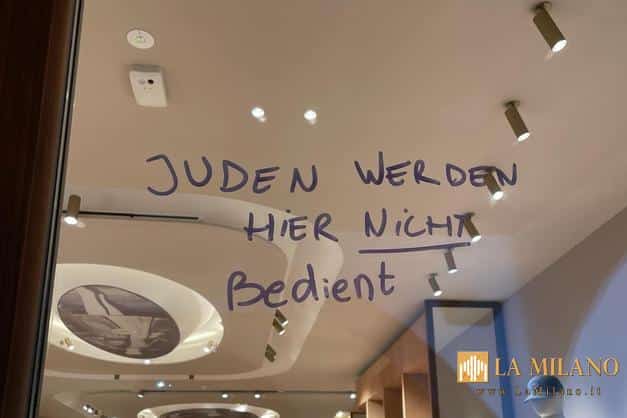 JUDEN WERDEN
HIER NICHT
Bedient
LA MILANO
www.LaMilano.it